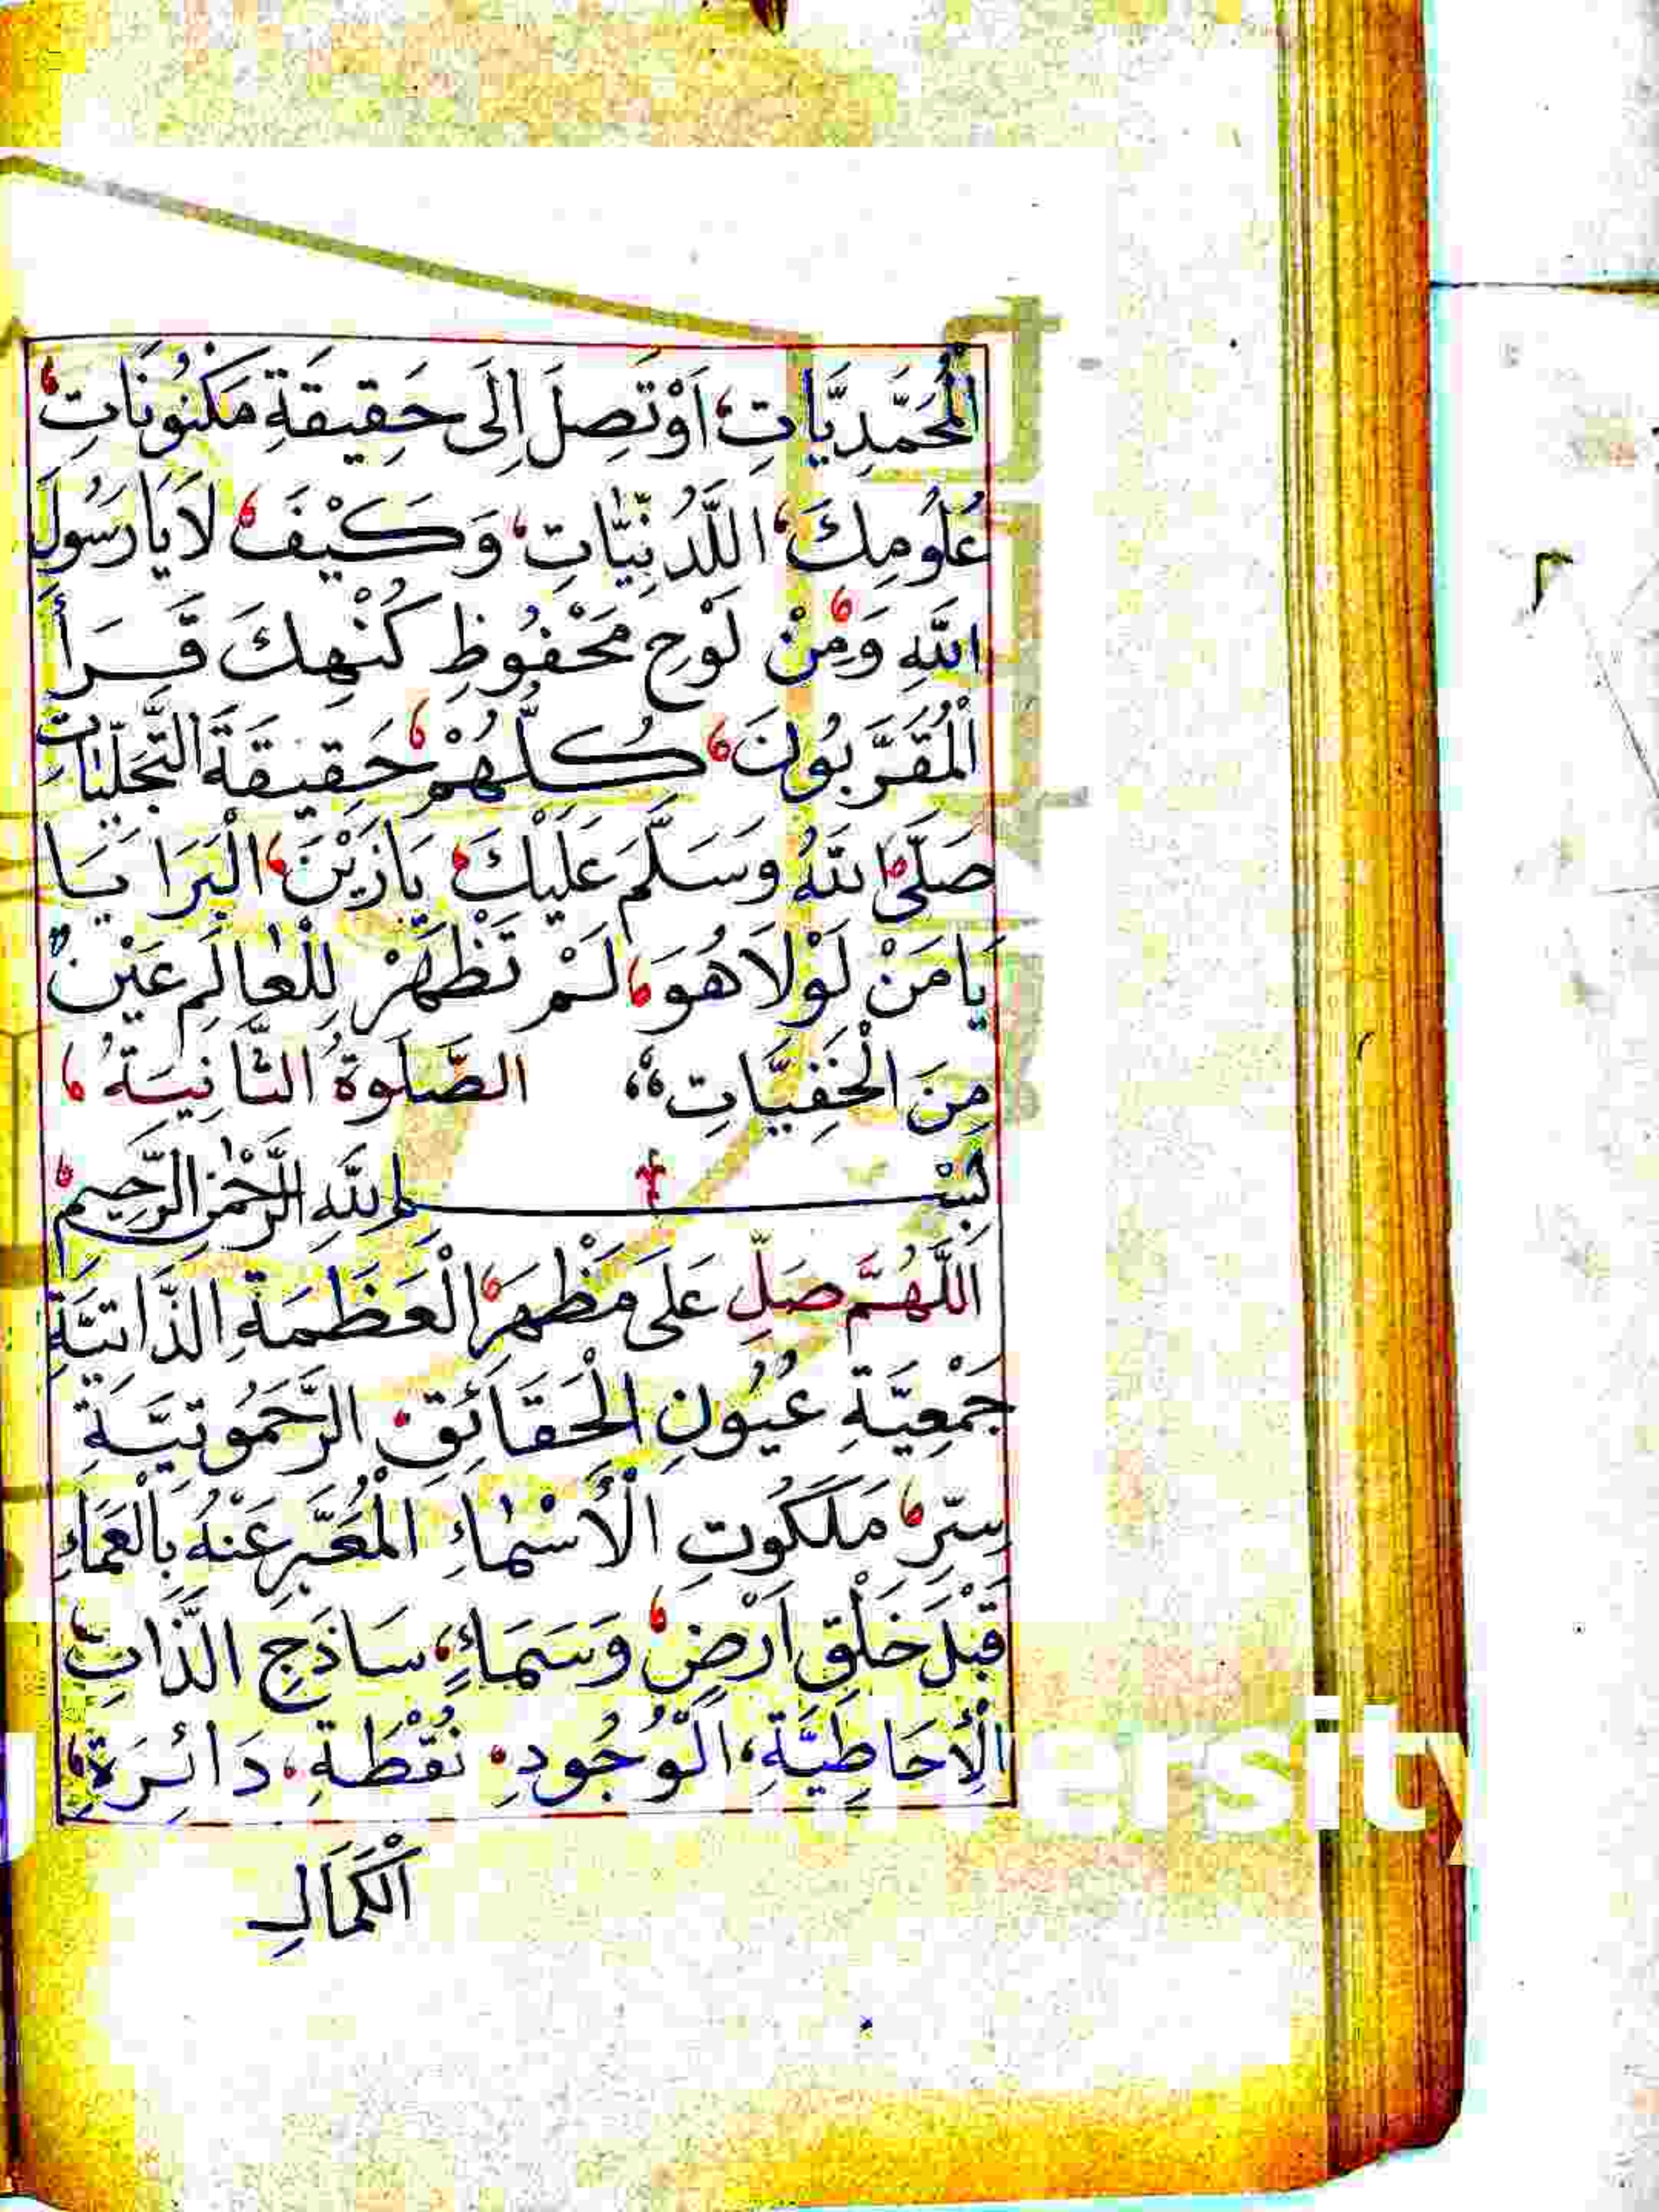 الْمُحَمَّدِيَّاتِ، اَوْ تَصِلَ اِلَى حَقِيقَةِ مَكْنُونَاتِ،
عُلُومِكَ، اللَّدُنِّيَّاتِ، وَكَيْفَ، لَا يَا رَسُولَ
اللّٰهِ وَمِنْ، لَوْحِ مَحْفُوظِ كُنْهِكَ قَرَأَ
الْمُقَرَّبُونَ، كُلُّهُمْ، حَقِيقَةَ التَّجَلِّيَاتِ
صَلَّى اللّٰهُ وَسَلَّمَ عَلَيْكَ، يَا زَيْنَ، الْبَرَايَا
يَا مَنْ لَوْلَا هُوَ، لَمْ تَظْهَرْ لِلْعَالَمِ عَيْنٌ
مِنَ الْخَفِيَّاتِ، الصَّلٰوةُ الثَّانِيَةُ،
بِسْمِ اللّٰهِ الرَّحْمٰنِ الرَّحِيمِ،
اَللّٰهُمَّ صَلِّ عَلَى مَظْهَرِ، الْعَظَمَةِ الذَّاتِيَّةِ
جَمْعِيَّةِ عُيُونِ الْحَقَائِقِ، الرَّحَمُوتِيَّةِ
سِرِّ، مَلَكُوتِ الْأَسْمَاءِ الْمُعَبَّرِ عَنْهُ بِالْعَمَاءِ
قَبْلَ خَلْقِ اَرْضٍ، وَسَمَاءٍ، سَاذَجِ الذَّاتِ،
الْاِحَاطِيَّةِ، الْوُجُودِ، نُقْطَةِ، دَائِرَةِ،
الْكَمَالِ
ersity